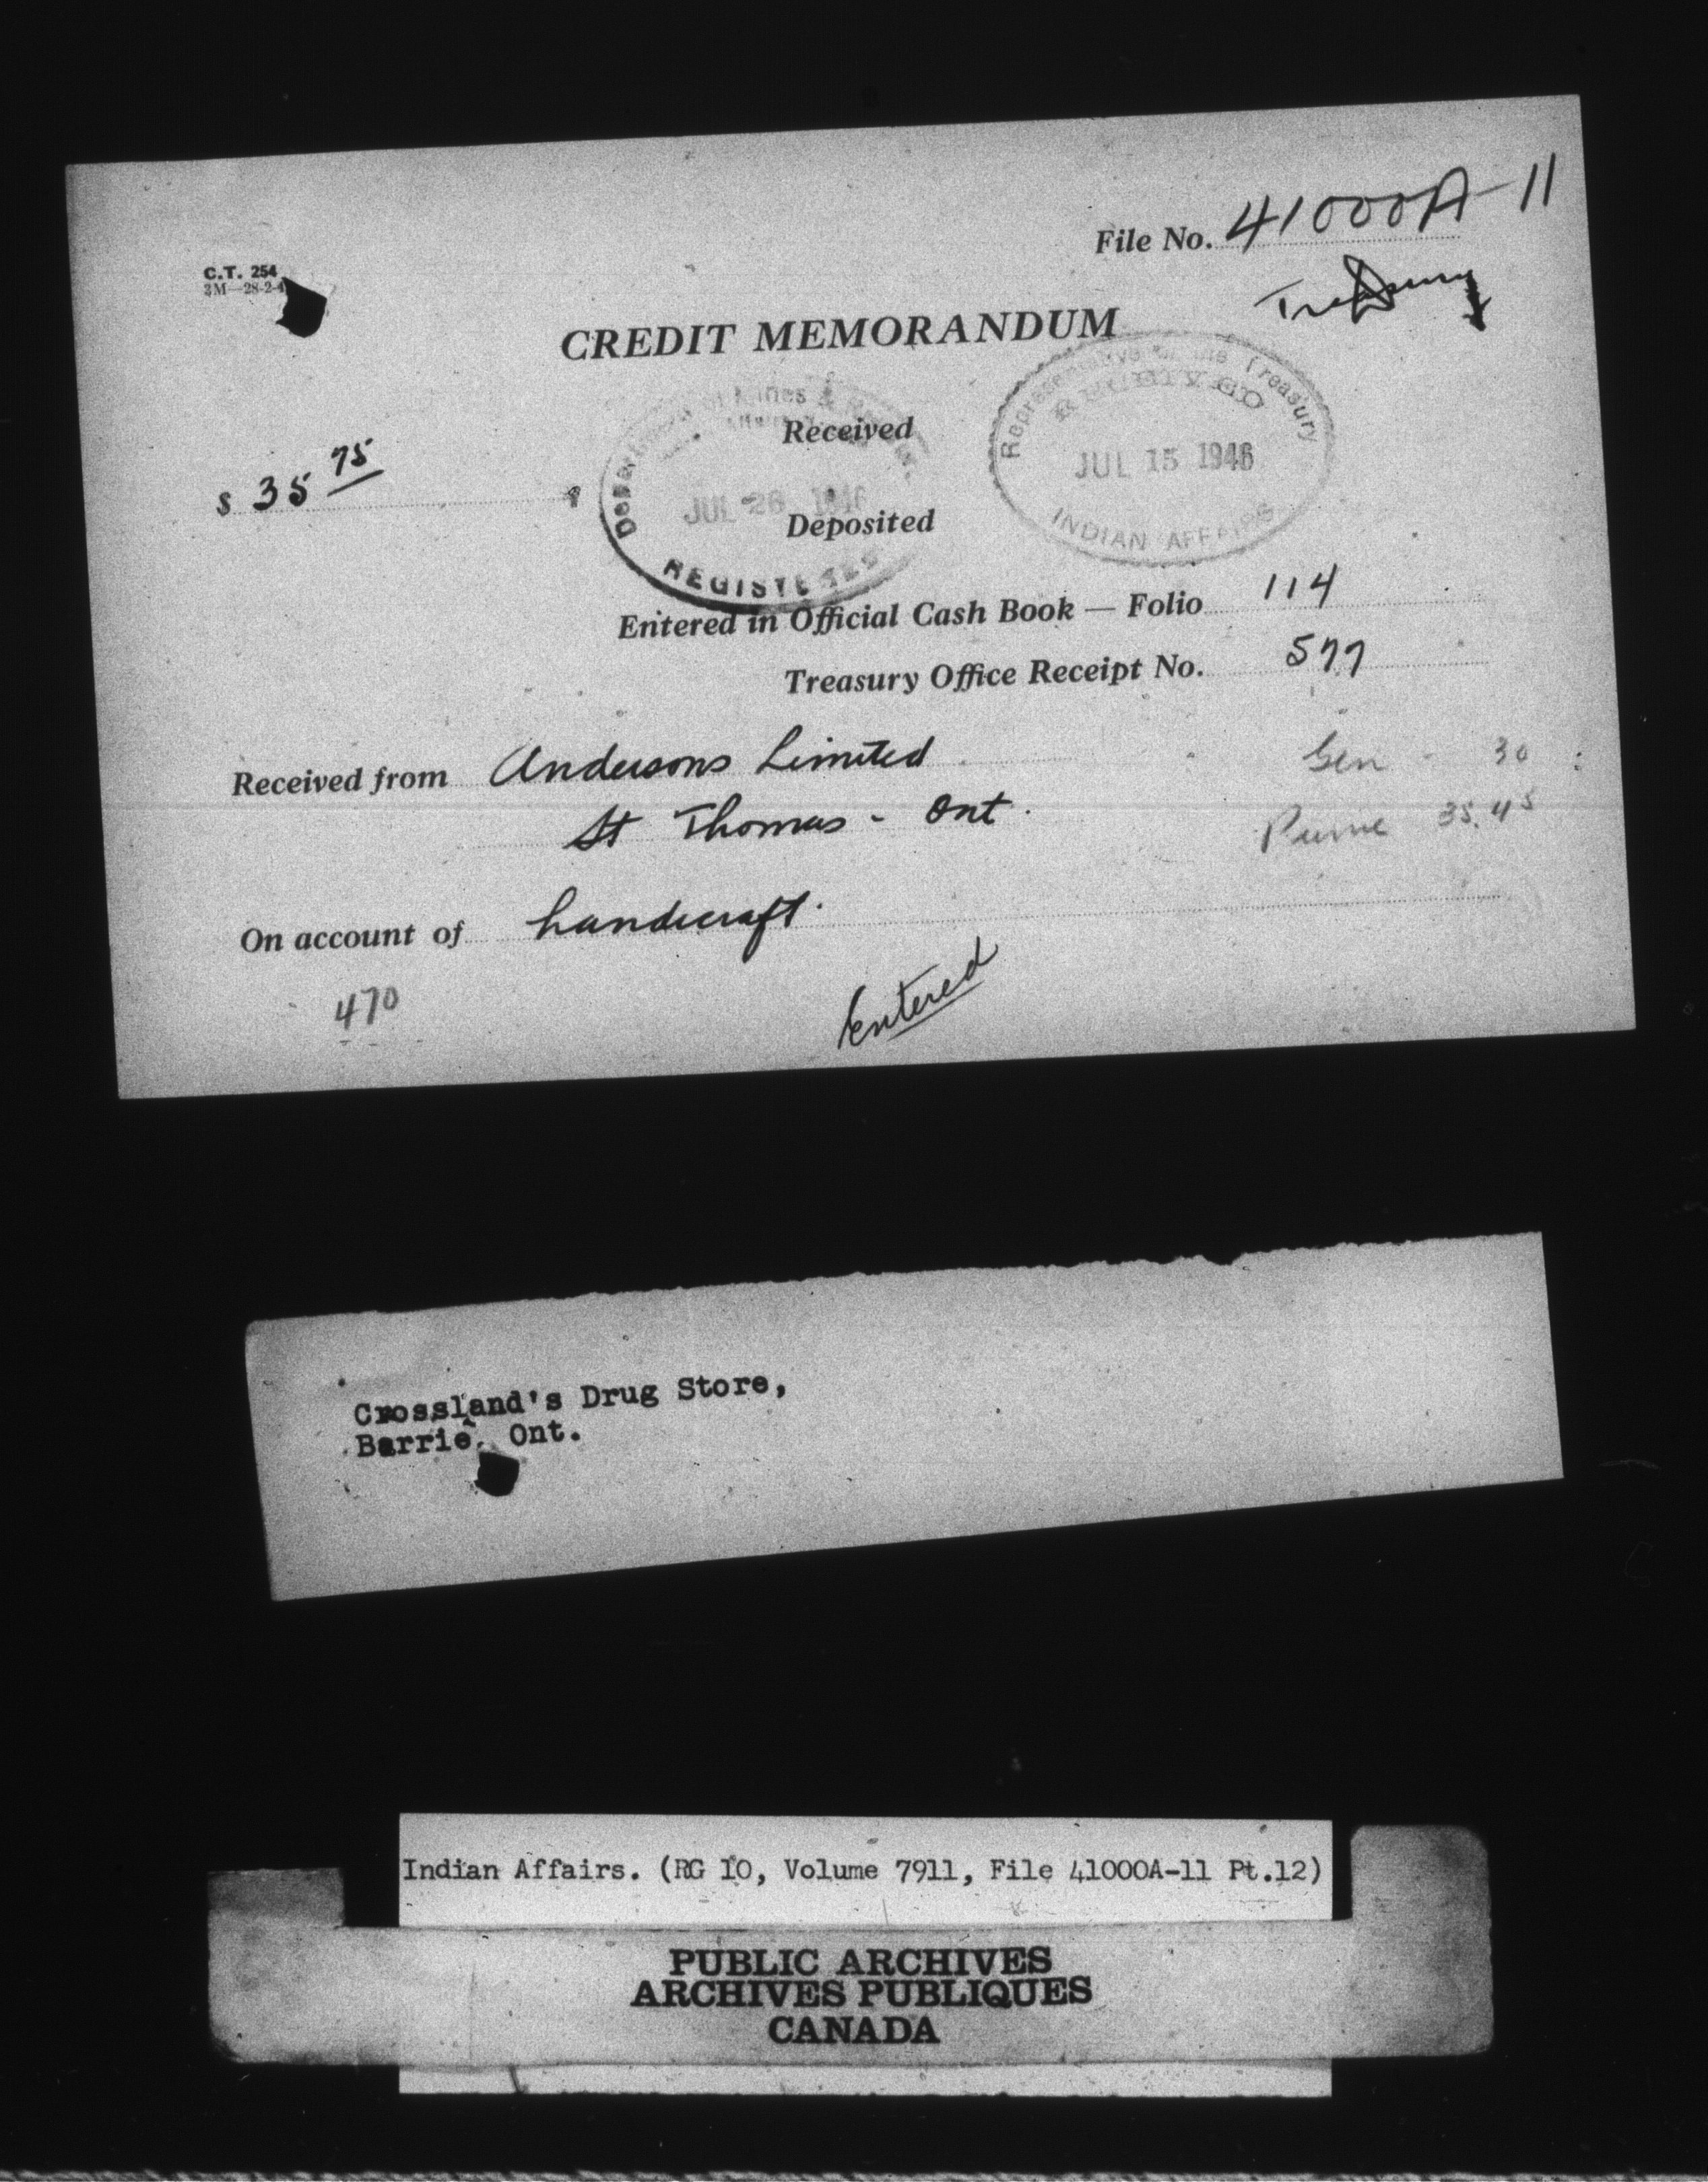 File No. 41000A-11
Treasury
C.T. 254
3M—28-2-4
CREDIT MEMORANDUM
Representative of the Treasury
RECEIVED
JUL 15 1946
INDIAN AFFAIRS
Department of Mines &
JUL 26 1946
REGISTERED
Received
$ 35 75
Deposited
Entered in Official Cash Book — Folio 114
Treasury Office Receipt No. 577
Received from Andersons Limited
Gen - 30
St Thomas - Ont.
35.45
On account of handicraft.
470
Entered
Crossland's Drug Store,
Barrie, Ont.
Indian Affairs. (RG 10, Volume 7911, File 41000A-11 Pt.12)
PUBLIC ARCHIVES
ARCHIVES PUBLIQUES
CANADA